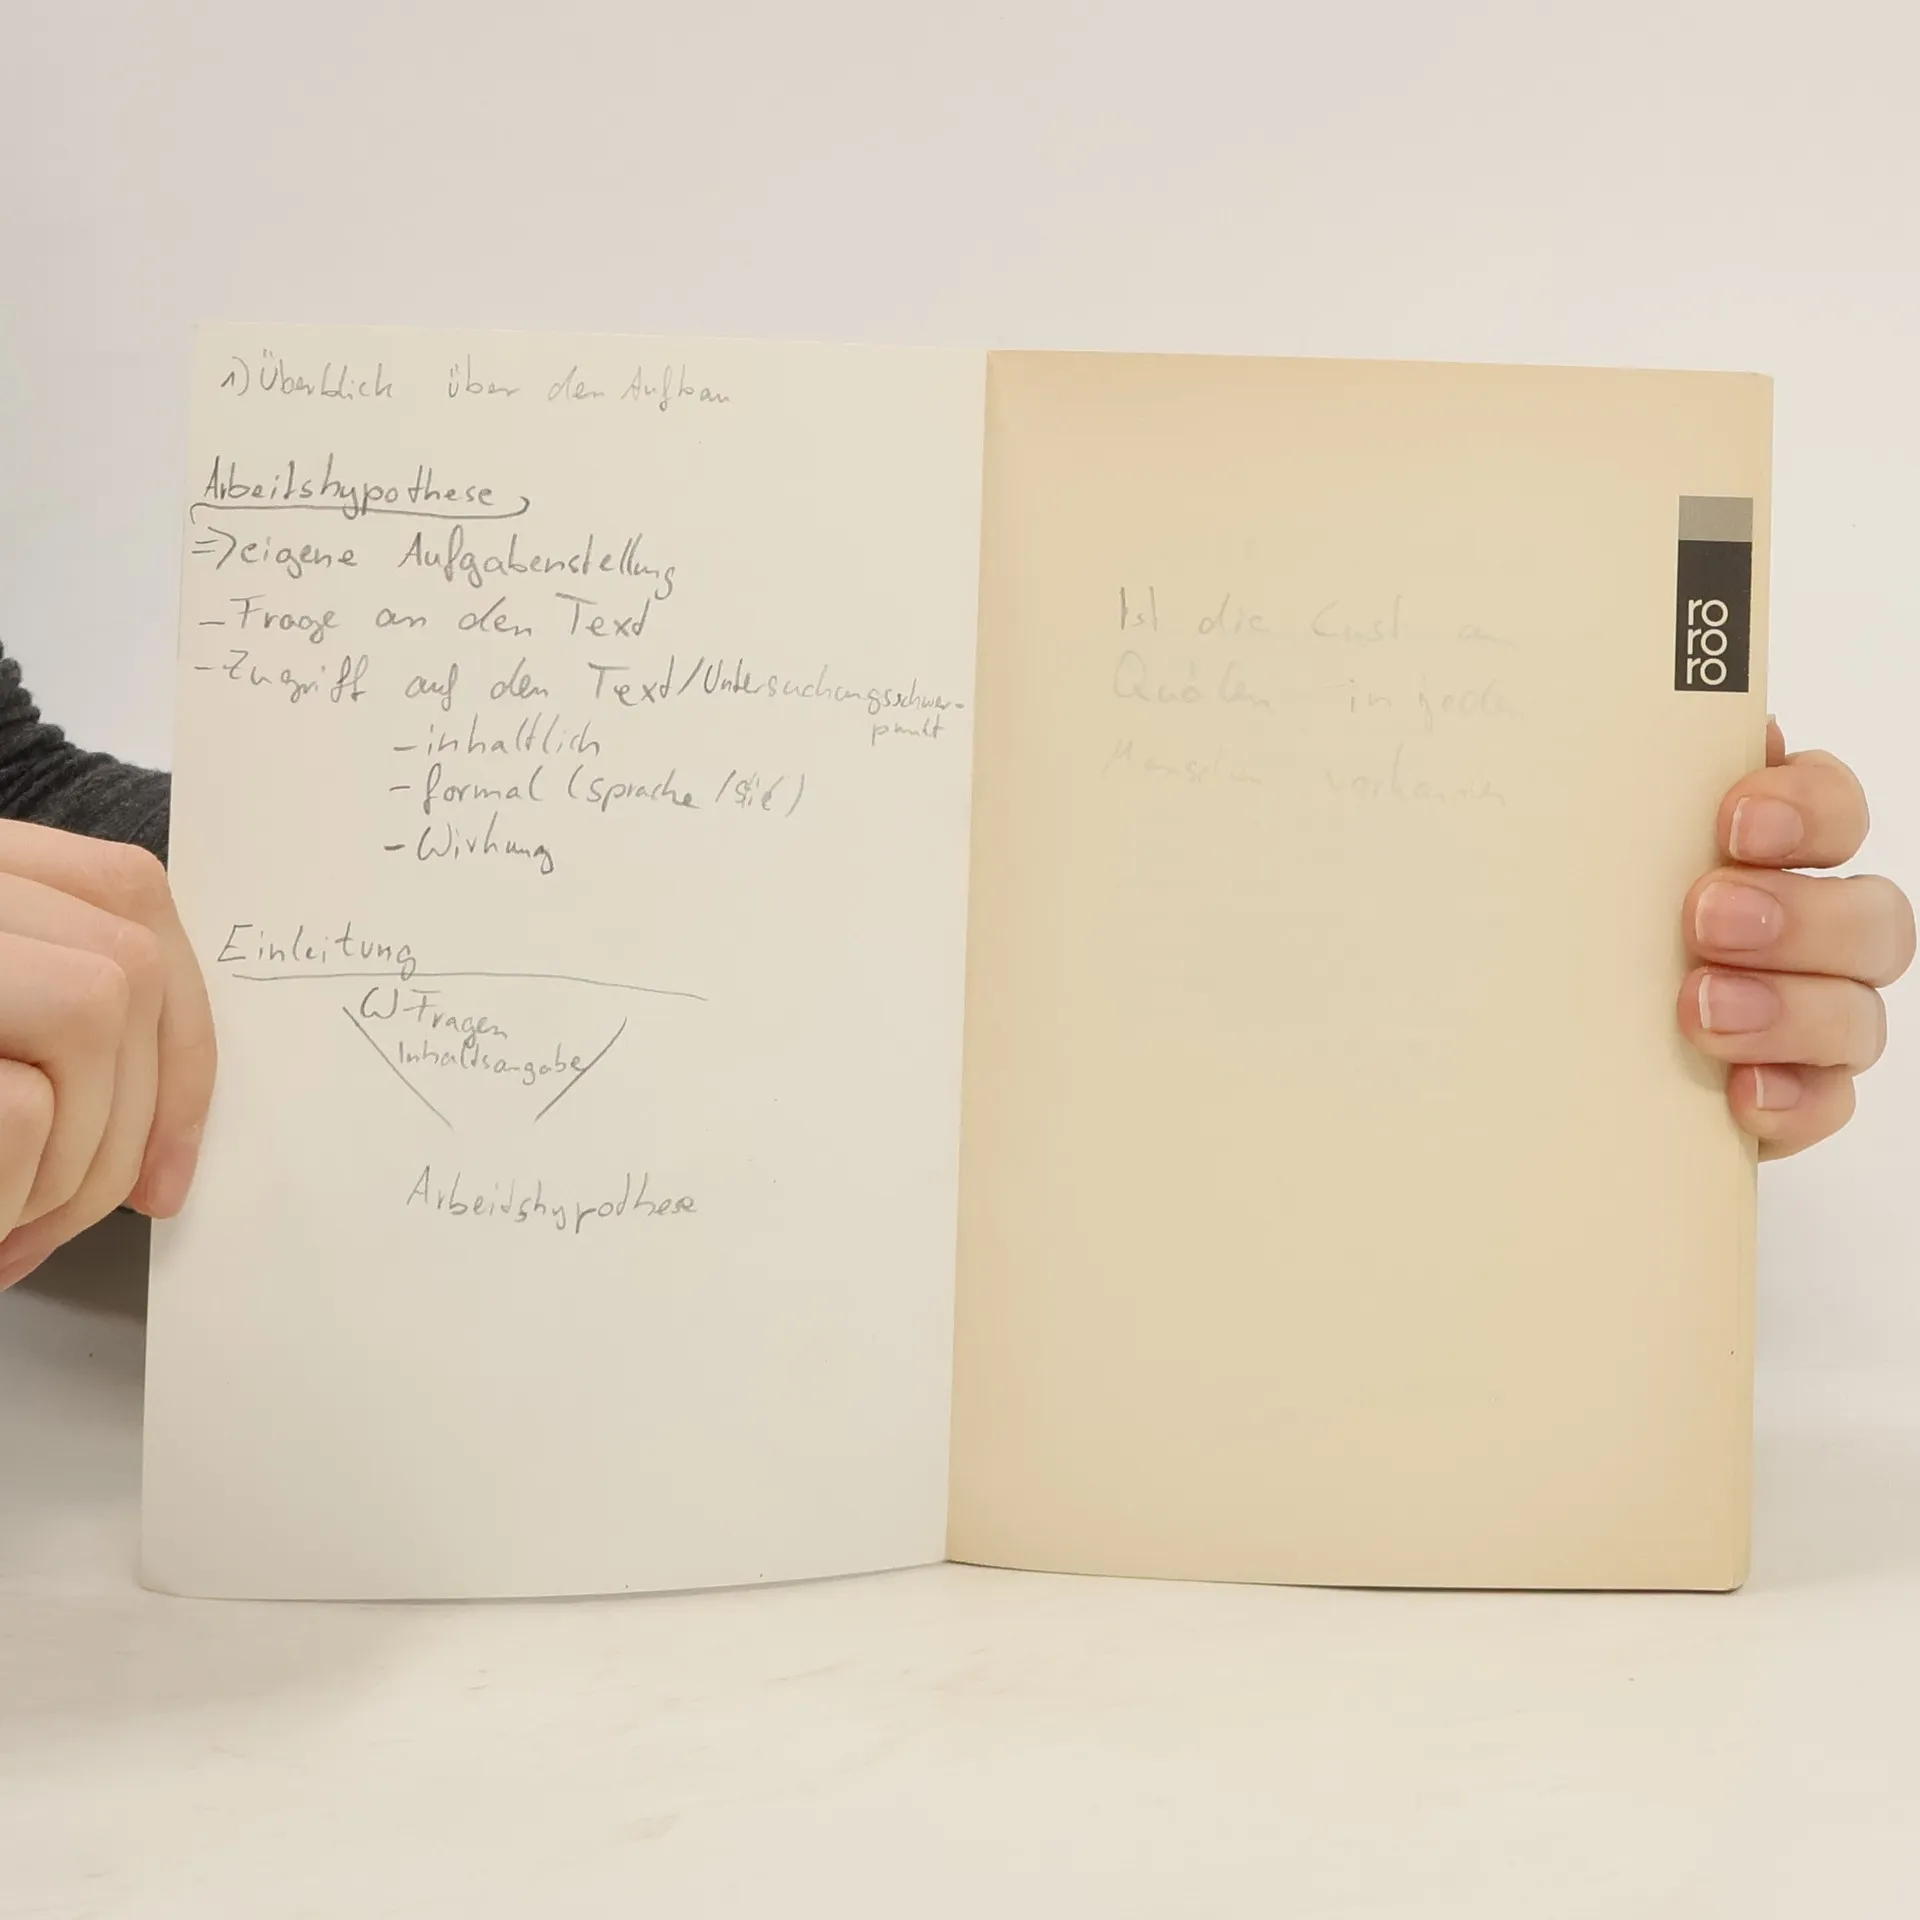 1) Überblick über den Aufbau
Arbeitshypothese
=> eigene Aufgabenstellung
- Frage an den Text
- Zugriff auf den Text/Untersuchungsschwer-
punkt
- inhaltlich
- formal (sprache /
- Wirkung
Einleitung
W-Fragen
Inhaltsangabe
Arbeitshypothese
Ist die Lust am
Quälen in jedem
Menschen vorhanden
ro
ro
ro